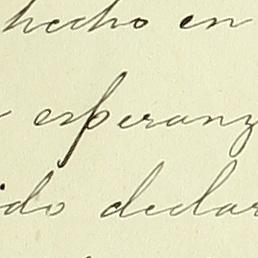 hecho en
esperanz
ido declar